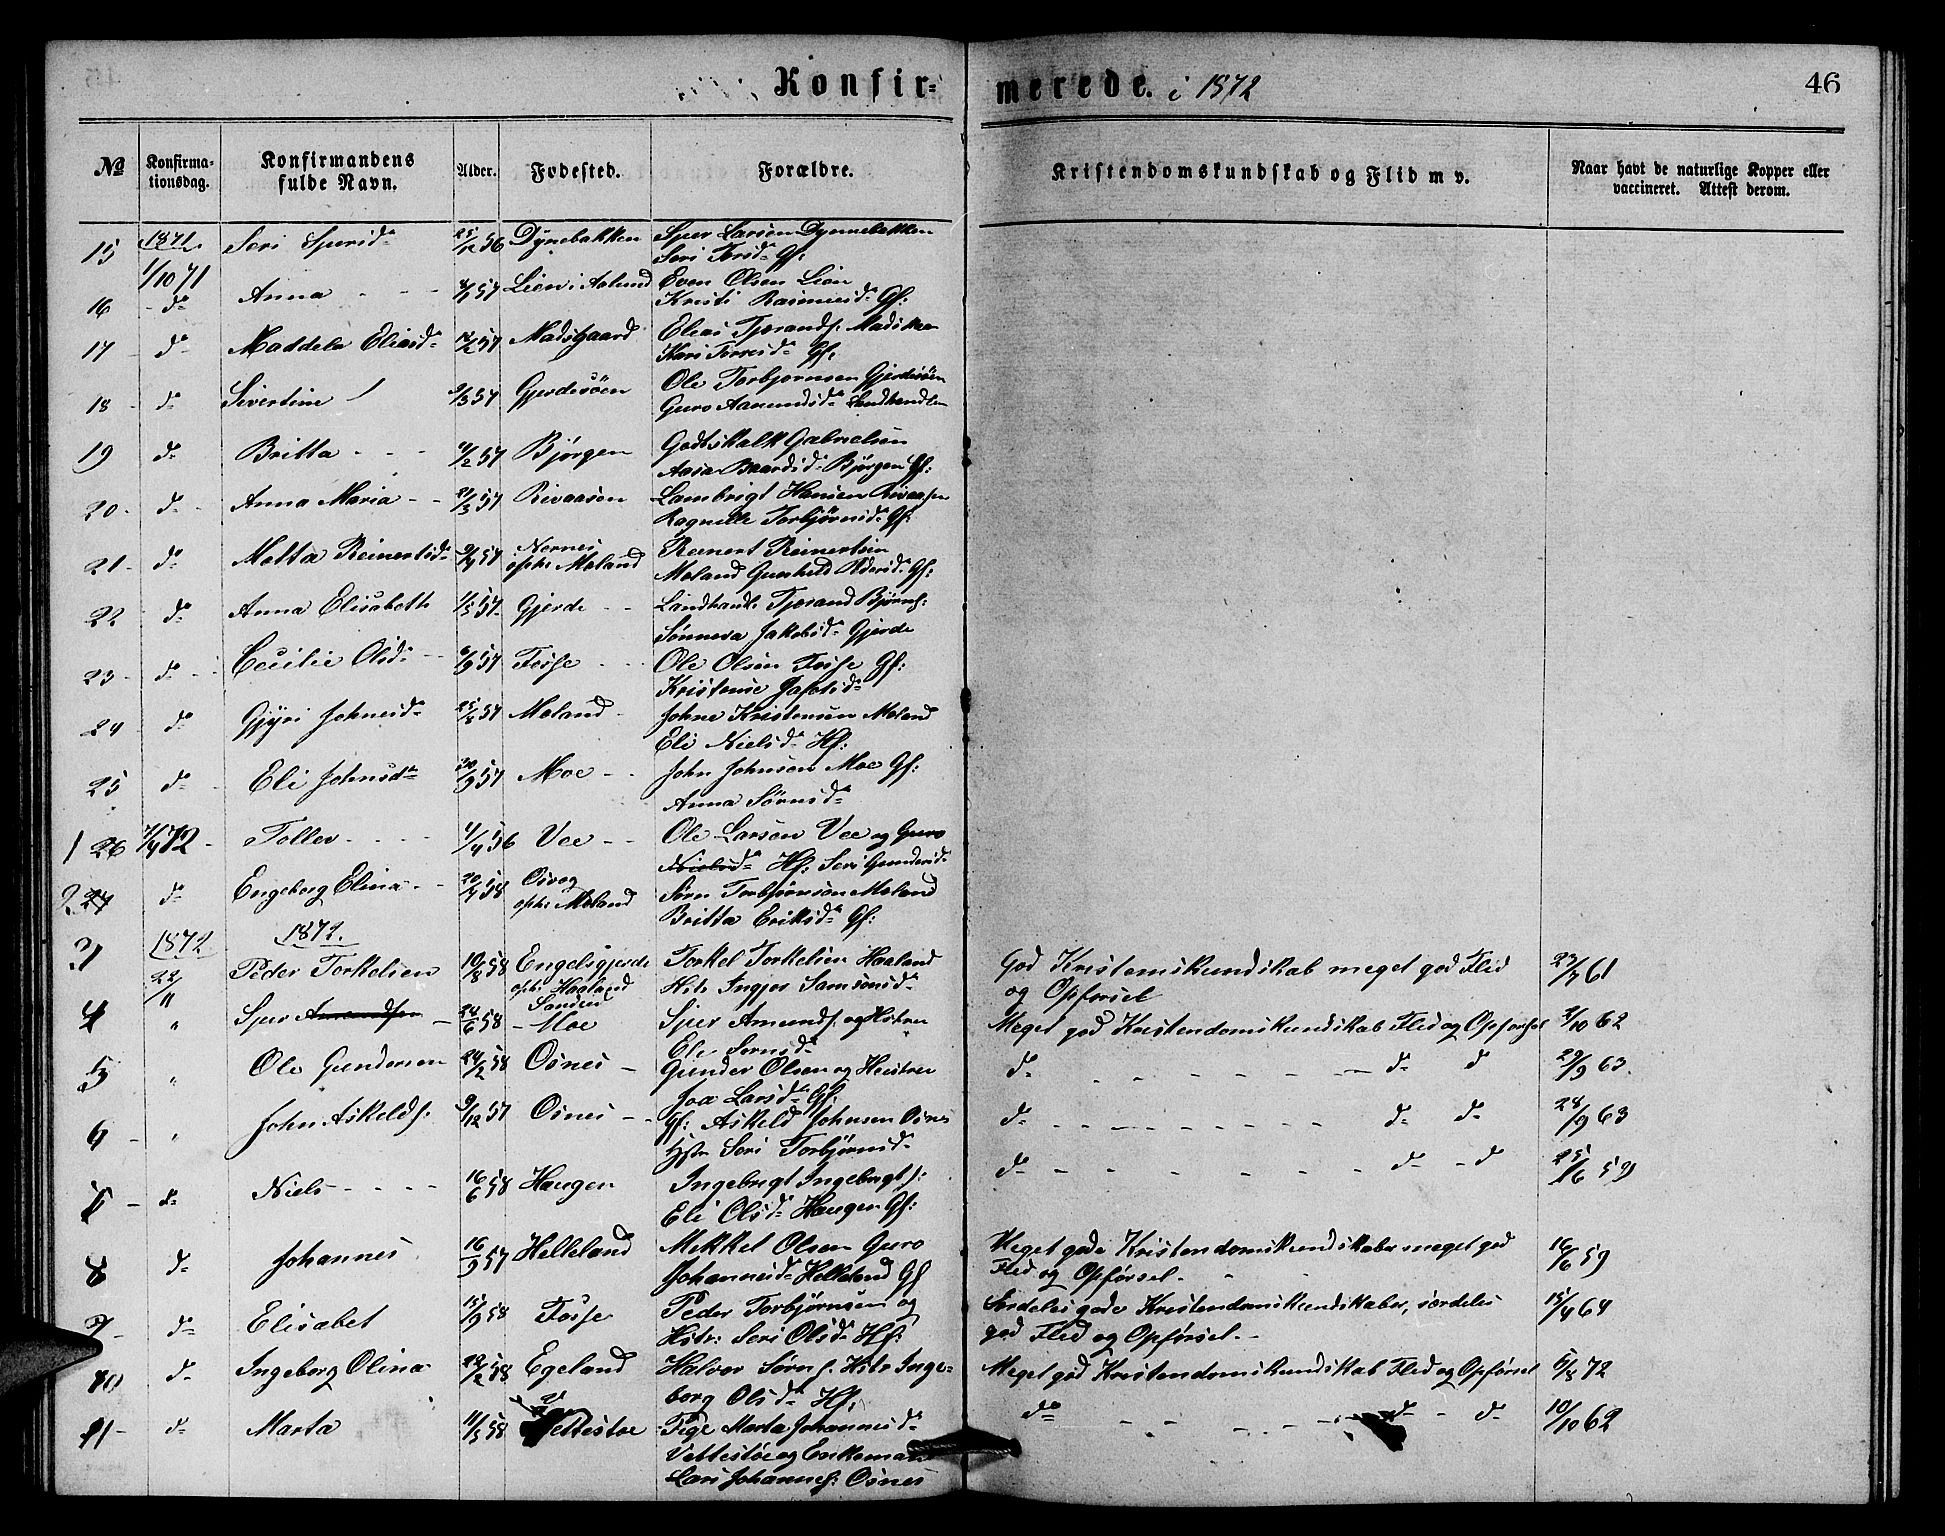 Konfirmerede. i 1872 46
№ Konfirmationsdag. Konfirmandens fulde Navn. Alder. Fødested. Forældre. Kristendomskundskab og Flid m v. Naar havt de naturlige Kopper eller vaccineret. Attest derom.
15 1871. 1/10 71 Seri Sjursd. 25/12 56 Dynebakken Sjur Larsen Dynnebakken
Seri Torsd. Gf:
16 - do Anna - - - 57 Lien i Aolund Even Olsen Lien
Kristi Rasmusd. Gf:
17 - do Maddela Eliasd. 57 Madsgaard Elias Tjærandf. Madskaar
Kari Torresd. Gf:
18 - do Sivertine 9/3 57 Gjerdesöen Ole Torbjørnsen Gjerdesöen
Guro Aamundsd. Landhandler
19 do Britta - - - 57 Bjørgen Godtskalk Gabrielsen
Aasa Baardsd. Bjørgen Gf:
20 - do Anna Maria - - 57 Rivaasen Lambrigt Hansen Rivaasen
Ragnille Torbjørnsd. Gf:
21 - do Metta Reinertsd. 57 Nernes opht. Møland Reinert Reinertsen
Møland Gunhild Gf:
22 do Anna Elisabeth 1/5 57 Gjerde - - Landhandl. Tjærand Bjørnf.
Sønneva Jakobsd. Gjerde
23 - do Cecilie Olsd. - 57 Fosse - - Ole Olsen Fosse Gf:
Kristense
24 do Gjyri Johnesd. 25/8 57 Møland - Johne Kristensen Møland
Eli Nielsd. Hf:
25 do Eli Johnsdtr 30/9 57 Moe - - John Johnsen Moe Gf:
Anna Sørensd.
1 26 7/4 72 - Tollev - - - - 4/4 56 Vee - - Ole Larsen Vee og Guro
Nielsd. Hf: Seri Gundersd.
2 27 do Engeborg Elina - - 20/4 58 Osvog opht. Møland Sørn Torbjørnson Møland
Britta Eriksd. Gf:
1872. 1872.
3 22/ " Peder Torkelsen 10/8 58 Engelsgjerde opht. Haaland Torkel Torkelsen Haaland
Hstr Ingjer Samsonsd. God Kristenskundskab meget god Flid og Opførsel 27/7 61
4 " Sjur Amundsen - 24/6 58 Sanden - Moe Sjur Amundf. og Hstru
Eli Sørnsd. Meget god Kristendomskundskab Flid og Opførsel 3/10 62
5 " Ole Gundersen 24/2 58 Osnes - Gunder Olsen og Hustru
Joa Larsd. Gf: do - - - - - do do 29/9 63.
6 - " John Askeldf. 9/12 57 Osnes - - Gf: Askeld Johnsen Osnes
Hstr Seri Torbjørnsd. do - - - - - do do 28/9 63
7 - do Niels - - - - 16/6 58 Haugen Ingebrigt Ingebrigtf:
Eli Olsd. Haugen Gf: do - - - - - do - do 25/6 59
8 do Johannes 16/9 57 Helleland Mekkel Olsen Guro
Johannesd. Helleland Gf Meget gode Kristendomskundskaber meget god
Flid og Opførsel. 16/6 59
9 - do Elisabet 15/9 58 Fosse Peder Torbjørnsen og
Hstr: Seri Olsd. Hf: Særdeles gode Kristendomskundskaber, særdeles
god Flid og Opførsel. - 15/9 64
10 do Ingeborg Olina 58 Egeland Halvor Sørnf. Hstr Inge-
borg Olsd. Hf: Meget god Kristendomskundskab Flid og Opførsel 5/8 72
11 - do Marta 11/5 58 Vettestøe Pige Marta Johannesd.
Vettestøe og Enkemand
Lars Johannesf: Osnes do - - - - do - do 10/10 62